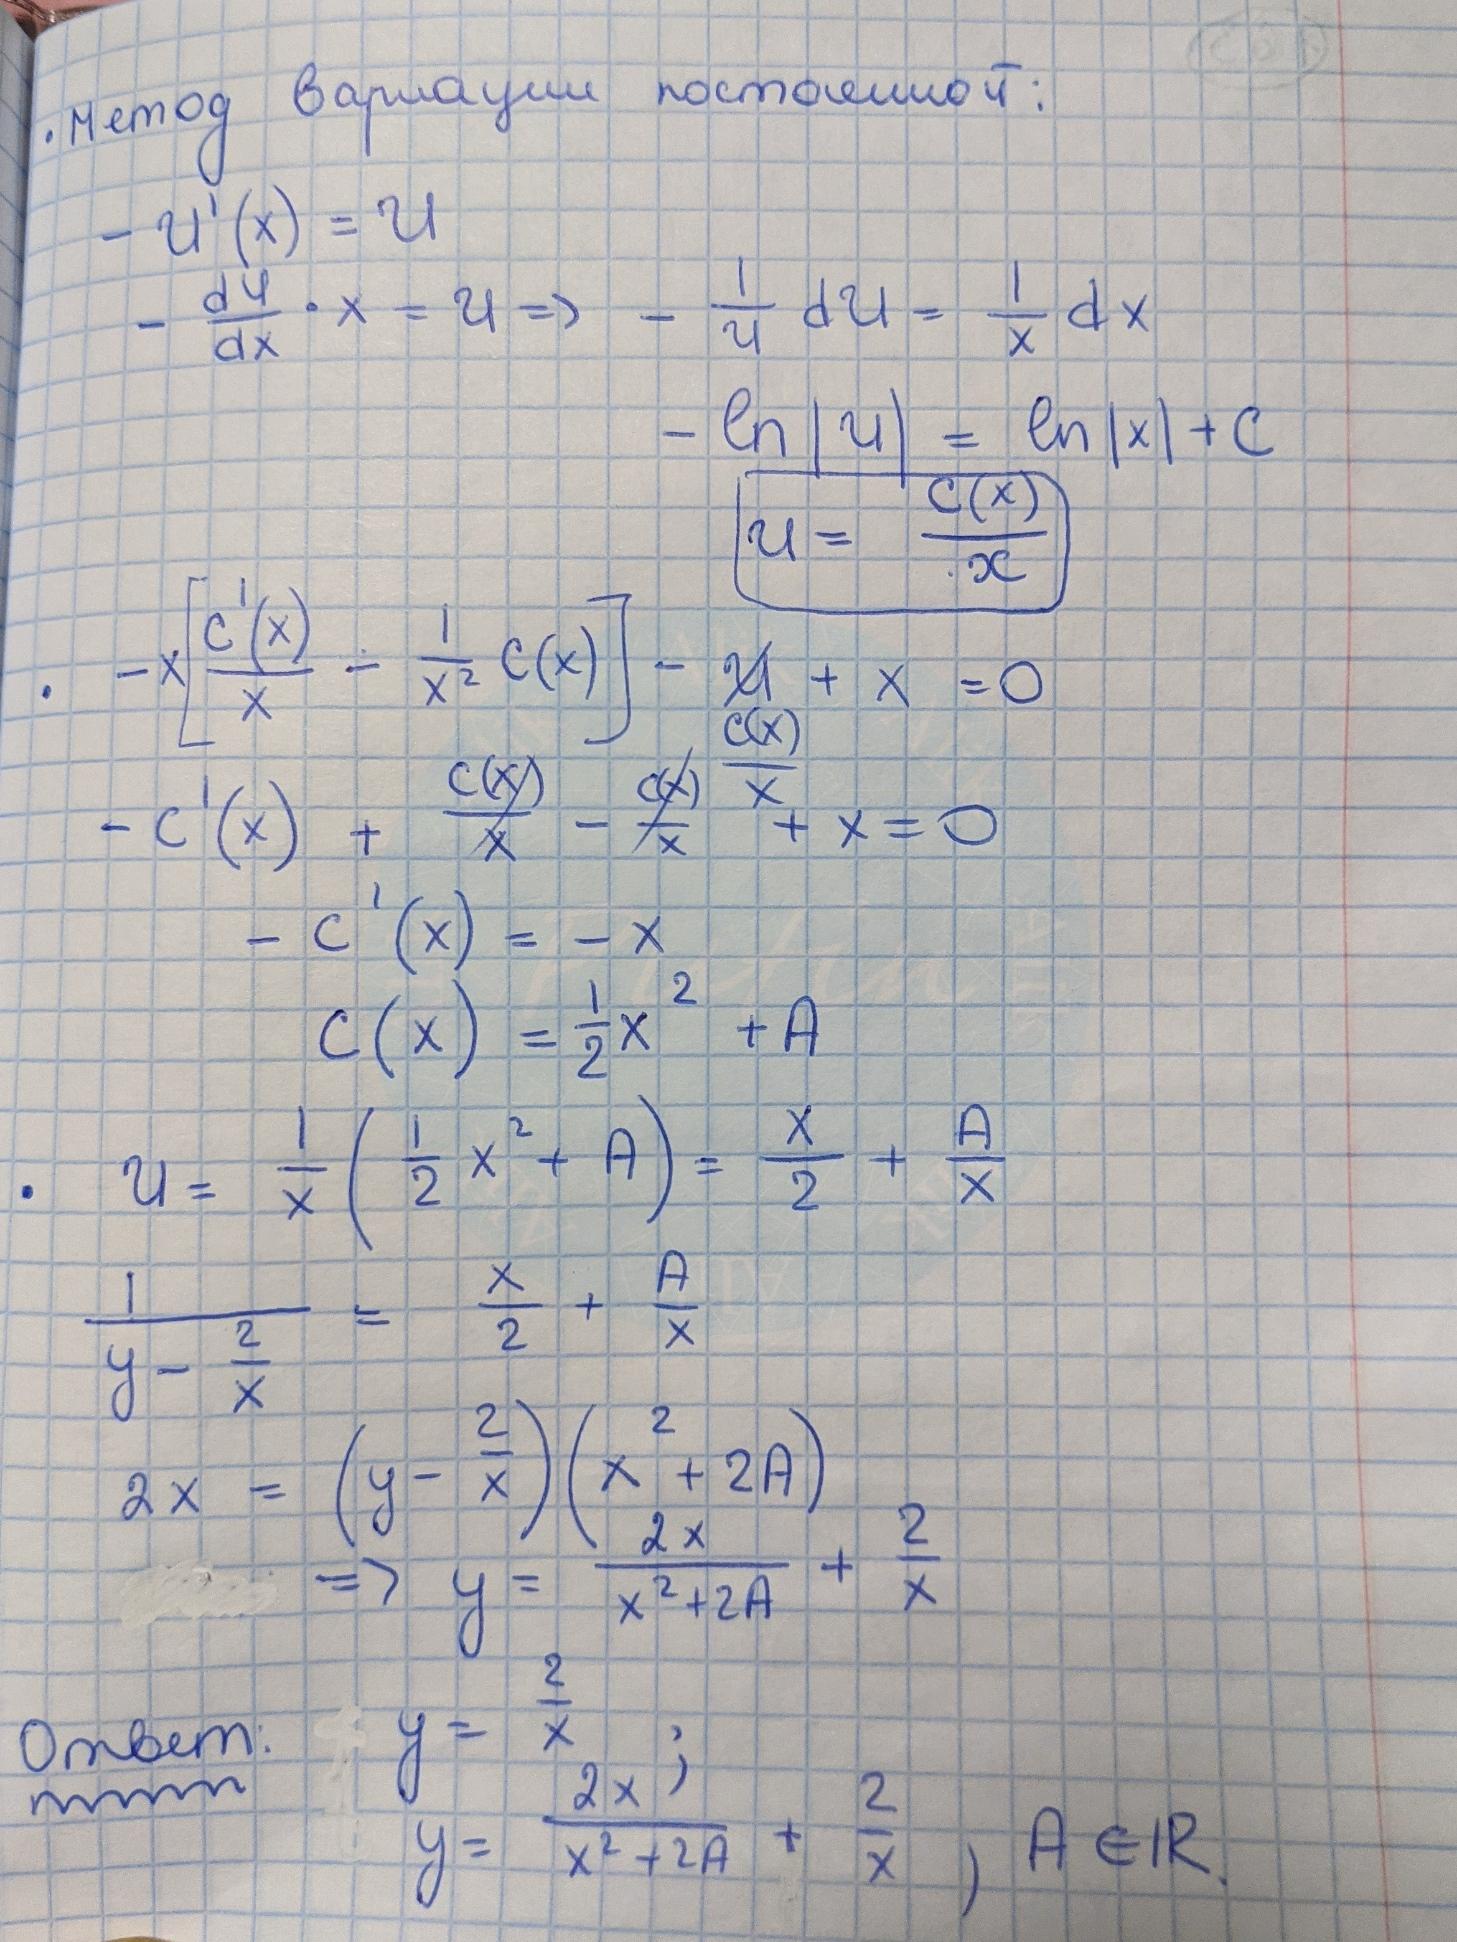 . Метод вариации постоянной:
- u'(x) = u
- du/dx · x = u => - 1/u du = 1/x dx
- ln |u| = ln |x| + C
u = C(x)/x
. -x [ C'(x)/x - 1/x² C(x) ] - u C(x)/x + x = 0
- C'(x) + C(x)/x - C(x)/x + x = 0
- C'(x) = - x
C(x) = 1/2 x² + A
. u = 1/x ( 1/2 x² + A ) = x/2 + A/x
1/(y - 2/x) = x/2 + A/x
2x = (y - 2/x)(x² + 2A)
=> y = 2x/(x² + 2A) + 2/x
Ответ: y = 2/x ;
y = 2x/(x² + 2A) + 2/x , A ∈ ℝ.